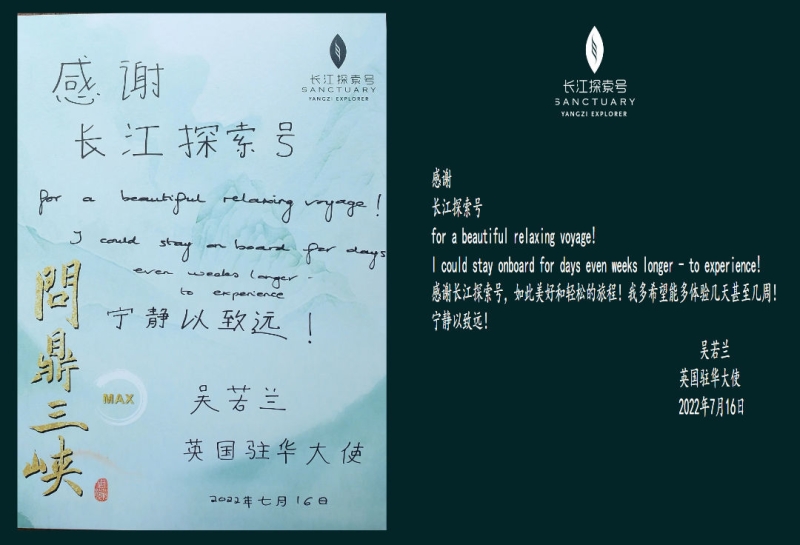 长江探索号
SANCTUARY
YANGZI EXPLORER
感谢
长江探索号
for a beautiful relaxing voyage!
I could stay on board for days
even weeks longer -
to experience
宁静以致远!
問鼎三峡
MAX
吴若兰
英国驻华大使
2022年七月16日
长江探索号
SANCTUARY
YANGZI EXPLORER
感谢
长江探索号
for a beautiful relaxing voyage!
I could stay onboard for days even weeks longer - to experience!
感谢长江探索号，如此美好和轻松的旅程！我多希望能多体验几天甚至几周！
宁静以致远！
吴若兰
英国驻华大使
2022年7月16日